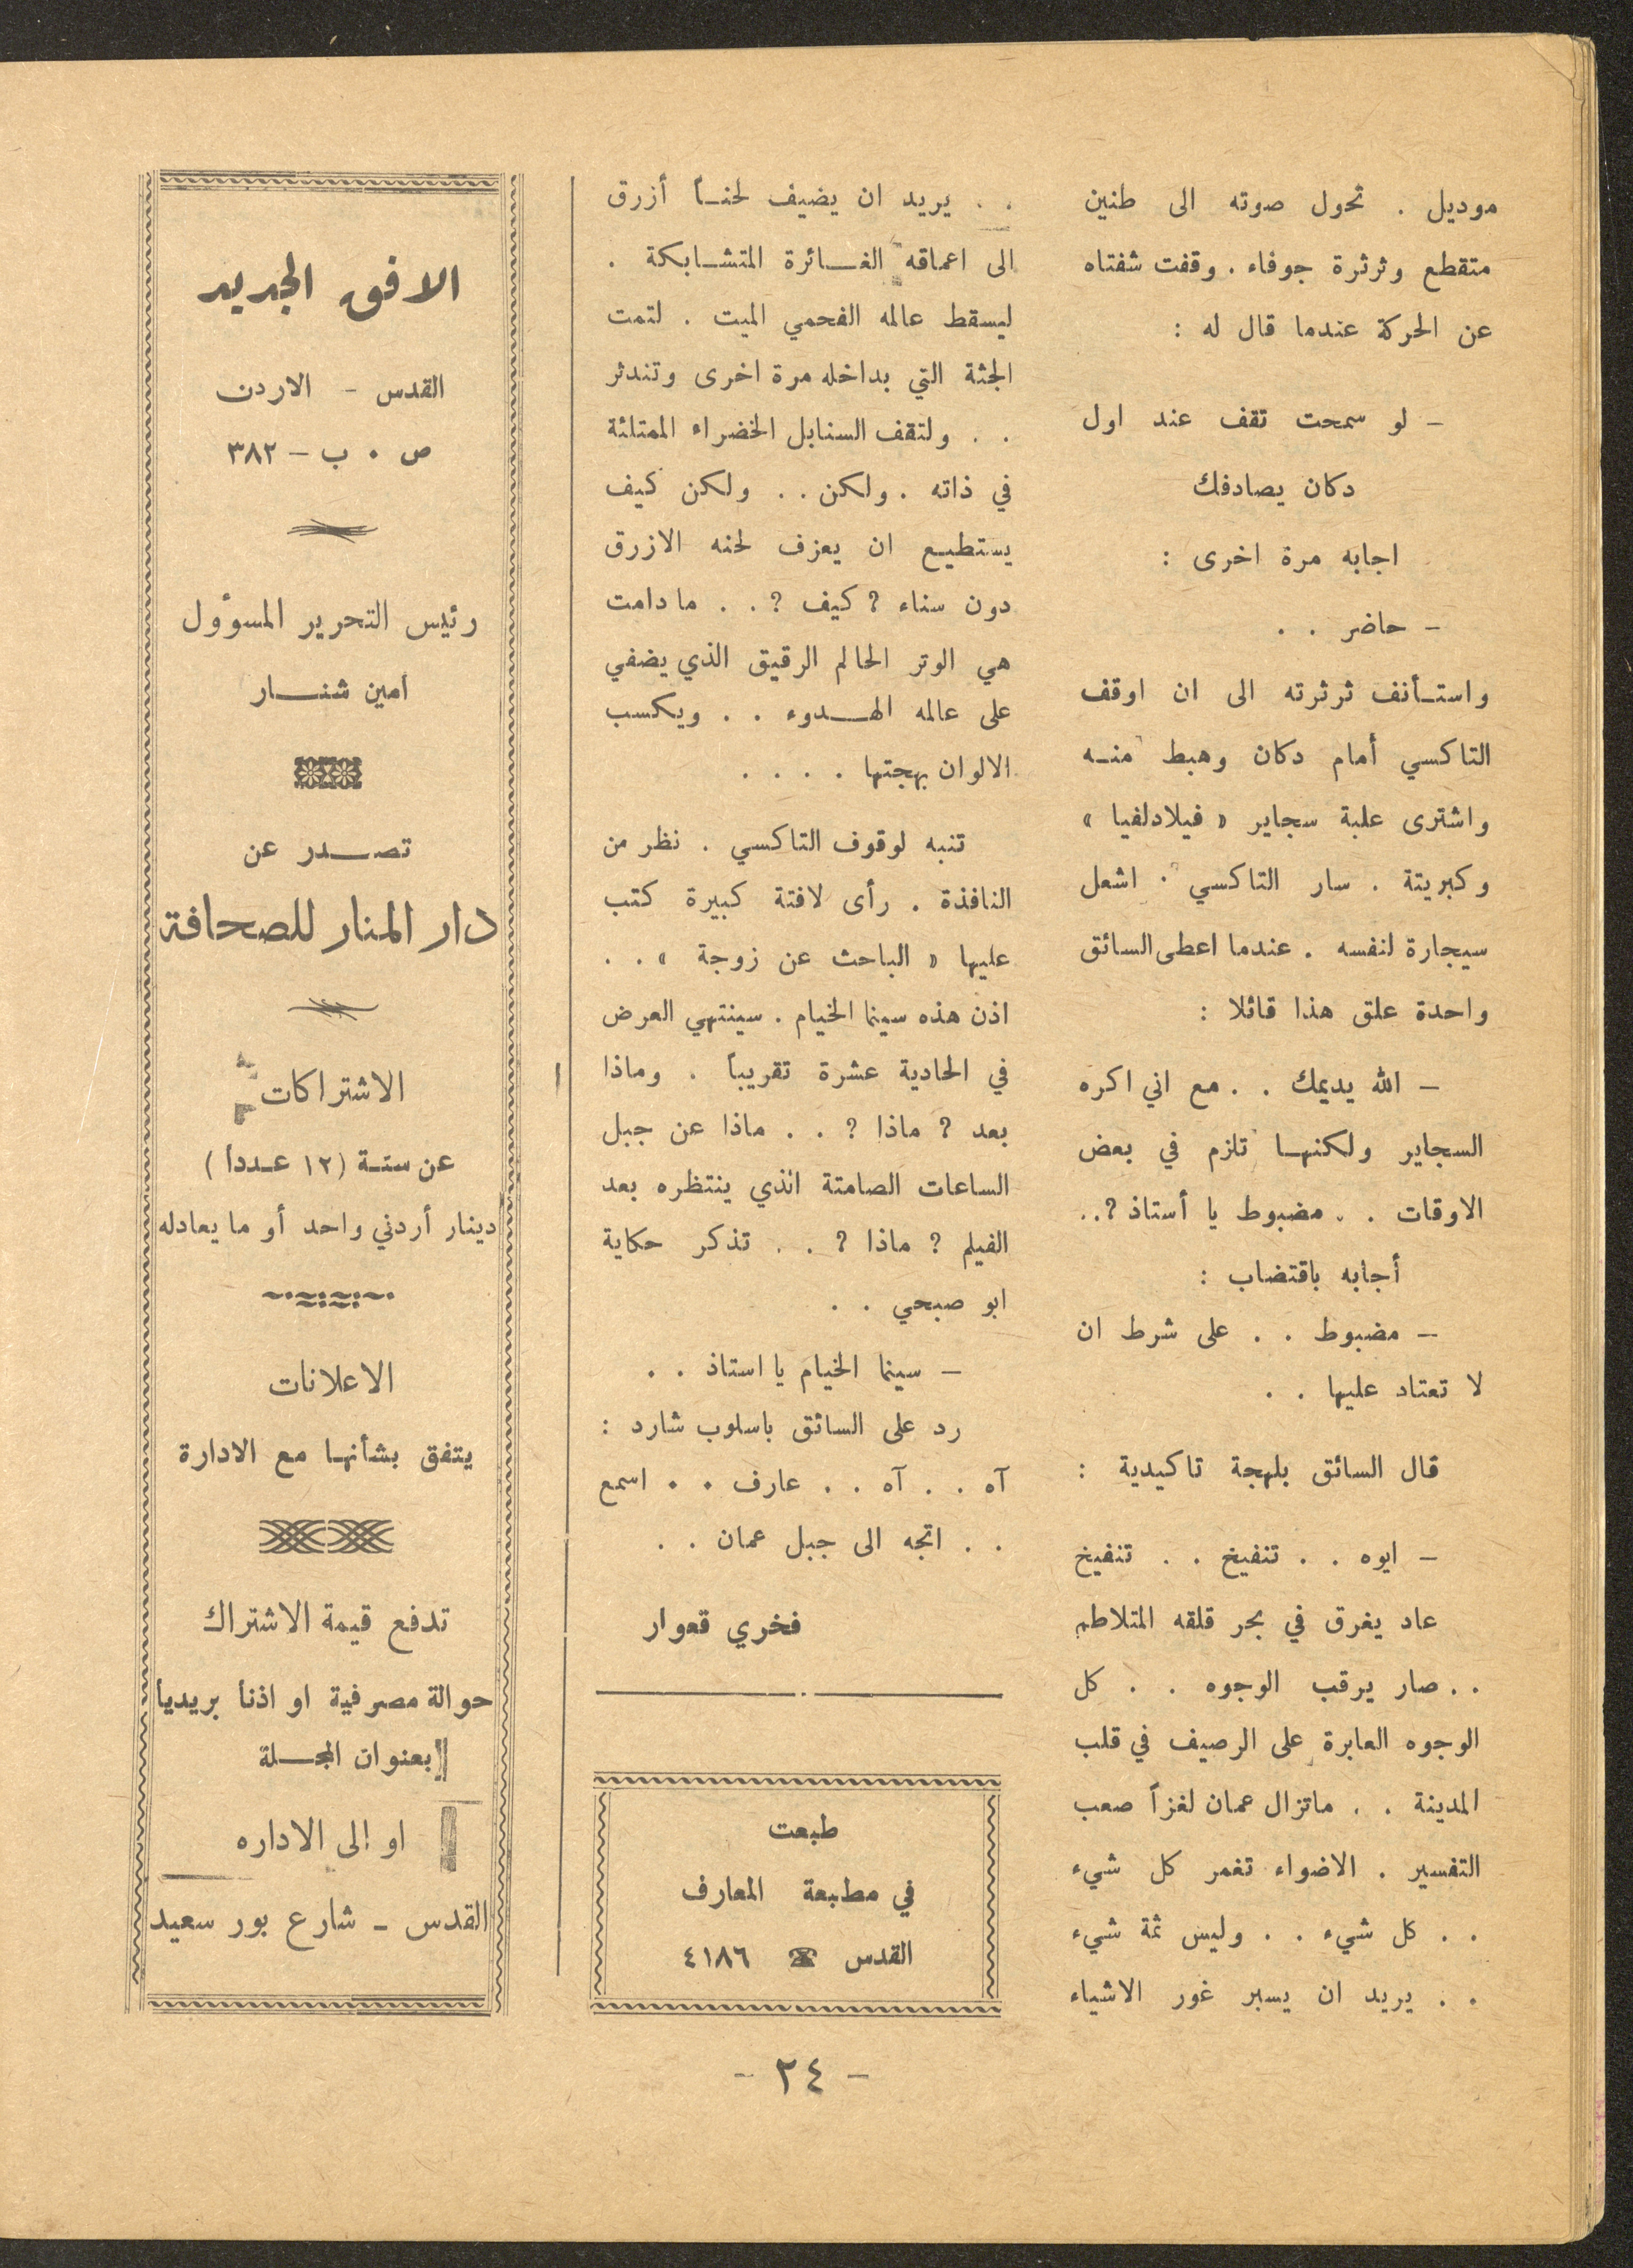 موديل . تحول صوته الى طنين
متقطع وثرثرة جوفاء . وقفت شفتاه
عن الحركة عندما قال له :
– لو سمحت تقف عند اول
دكان يصادفك
اجابه مرة اخرى :
– حاضر . .
واستـأنف ثرثرته الى ان اوقف
التاكسي أمام دكان وهبط منـه
واشترى علبة سجاير « فيلادلفيا »
وكبريتة . سار التاكسي . اشعل
سيجارة لنفسه . عندما اعطى السائق
واحدة علق هذا قائلا :
– الله يديمك . . مع اني اكره
السجاير ولكنهـا تلزم في بعض
الاوقات . . مضبوط يا أستاذ ؟..
أجابه باقتضاب :
– مضبوط . . على شرط ان
لا تعتاد عليها . .
قال السائق بلهجة تاكيدية :
– ايوه . . تنفيخ . . تنفيخ
عاد يغرق في بحر قلقه المتلاطم
. . صار يرقب الوجوه . . كل
الوجوه العابرة على الرصيف في قلب
المدينة . . ماتزال عمان لغزاً صعب
التفسير . الاضواء تغمر كل شيء
. . كل شيء . . وليس ثمة شيء
. . يريد ان يسبر غور الاشياء
. . يريد ان يضيف لحنـاً أزرق
الى اعماقه الغـائرة المتشـابكة .
ليسقط عالمه الفحمي الميت . لتمت
الجثة التي بداخله مرة اخرى وتندثر
. . ولتقف السنابل الخضراء الممتلئة
في ذاته . ولكن . . ولكن كيف
يستطيـع ان يعزف لحنه الازرق
دون سناء ؟ كيف ؟ . . ما دامت
هي الوتر الحالم الرقيق الذي يضفي
على عالمه الهــدوء . . ويكسب
الالوان بهجتها . . . .
تنبه لوقوف التاكسي . نظر من
النافذة . رأى لافتة كبيرة كتب
عليها « الباحث عن زوجة » . .
اذن هذه سينما الخيام . سينتهي العرض
في الحادية عشرة تقريباً . وماذا
بعد ؟ ماذا ؟ . . ماذا عن جبل
الساعات الصامتة الذي ينتظره بعد
الفيلم ؟ ماذا ؟ . . تذكر حكاية
ابو صبحي . .
– سينما الخيام يا استاذ . .
رد على السائق باسلوب شارد :
آه . . آه . . عارف . . اسمع
. . اتجه الى جبل عمان . .
فخري قعوار
طبعت
في مطبعة المعارف
القدس ☎ ٤١٨٦
الافق الجديد
القدس – الاردن
ص . ب – ٣٨٢
رئيس التحرير المسؤول
امين شنـــار
تصــدر عن
دار المنار للصحافة
الاشتراكات
عن سنـة (١٢ عـدداً )
دينار أردني واحد أو ما يعادله
الاعلانات
يتفق بشأنها مع الادارة
تدفع قيمة الاشتراك
حوالة مصرفية او اذناً بريدياً
بعنوان المجــلة
او الى الاداره
القدس – شارع بور سعيد
– ٢٤ –